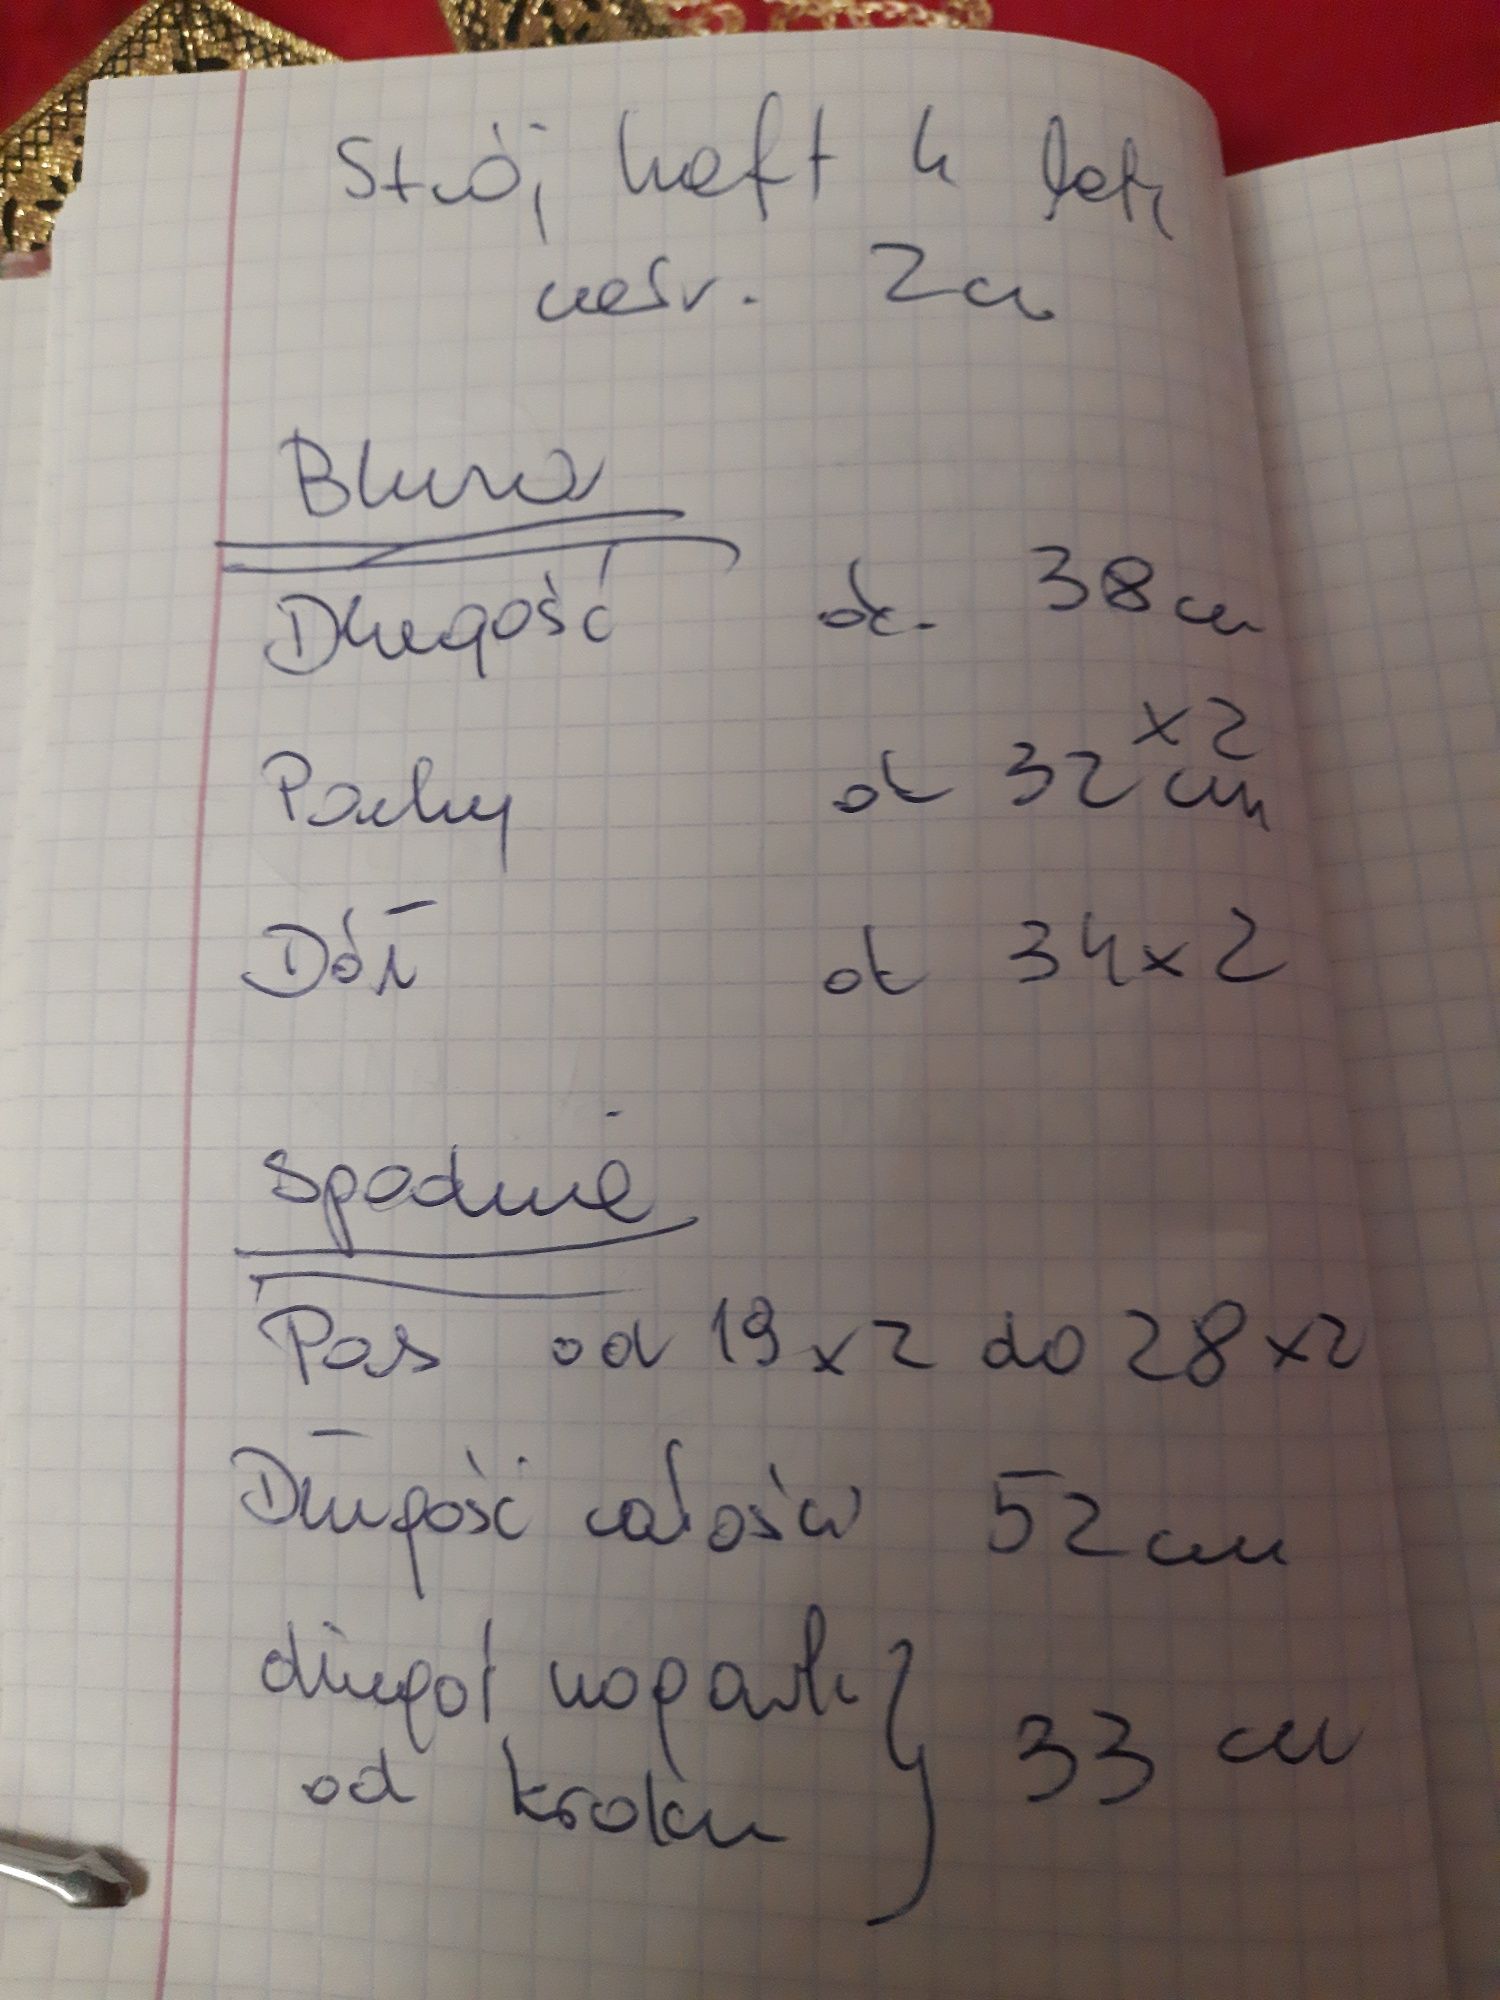 Strój haft 4 latk
2cm
Bluza
Długość ok. 38cm
x2
Pachy ok 32 cm
Dół ok 34x2
Spodnie
Pas od 19x2 do 28x2
Długość całości 52cm
długoś nogawki
od kroku 33 cm